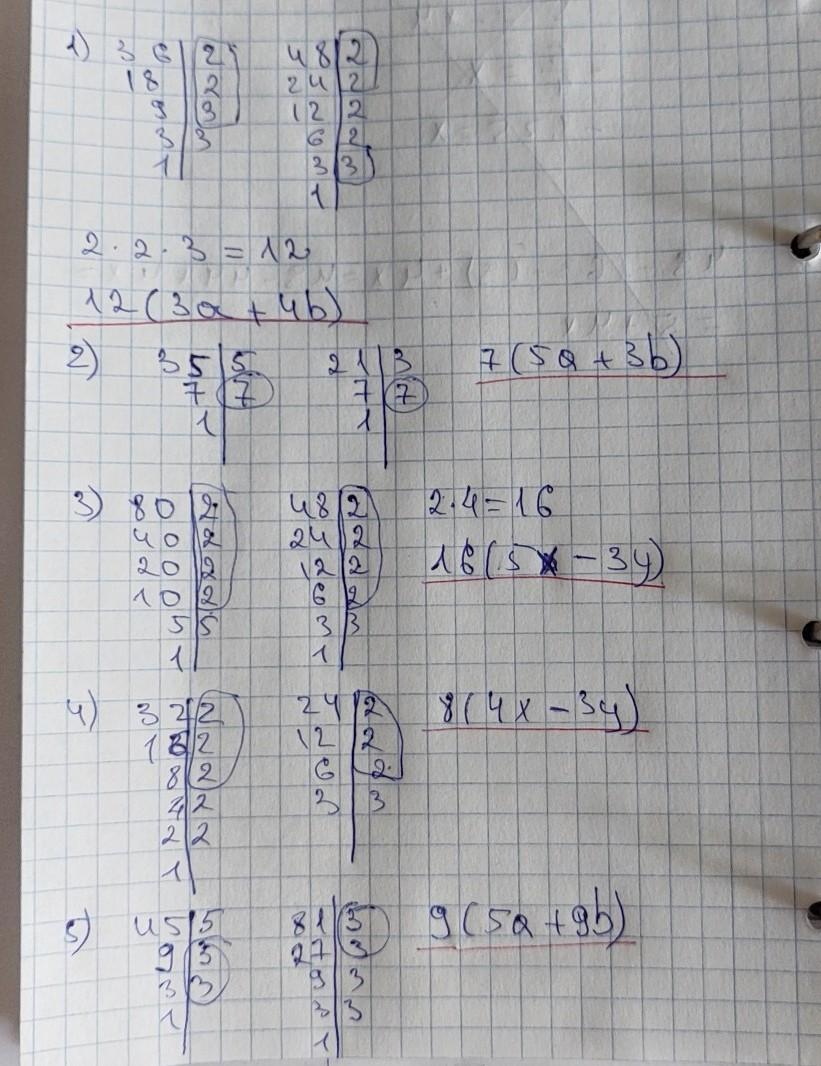 1) 36 | 2 48 | 2
18 | 2 24 | 2
9 | 3 12 | 2
3 | 3 6 | 2
1 | 3 | 3
1 |
2 · 2 · 3 = 12
12(3a + 4b)
2) 35 | 5 21 | 3 7(5a + 3b)
7 | 7 7 | 7
1 | 1 |
3) 80 | 2 48 | 2 2·4=16
40 | 2 24 | 2
20 | 2 12 | 2 16(5x - 3y)
10 | 2 6 | 2
5 | 5 3 | 3
1 | 1 |
4) 32 | 2 24 | 2 8(4x - 3y)
16 | 2 12 | 2
8 | 2 6 | 2
4 | 2 3 | 3
2 | 2
1 |
5) 45 | 5 81 | 3 9(5a + 9b)
9 | 3 27 | 3
3 | 3 9 | 3
1 | 3 | 3
1 |